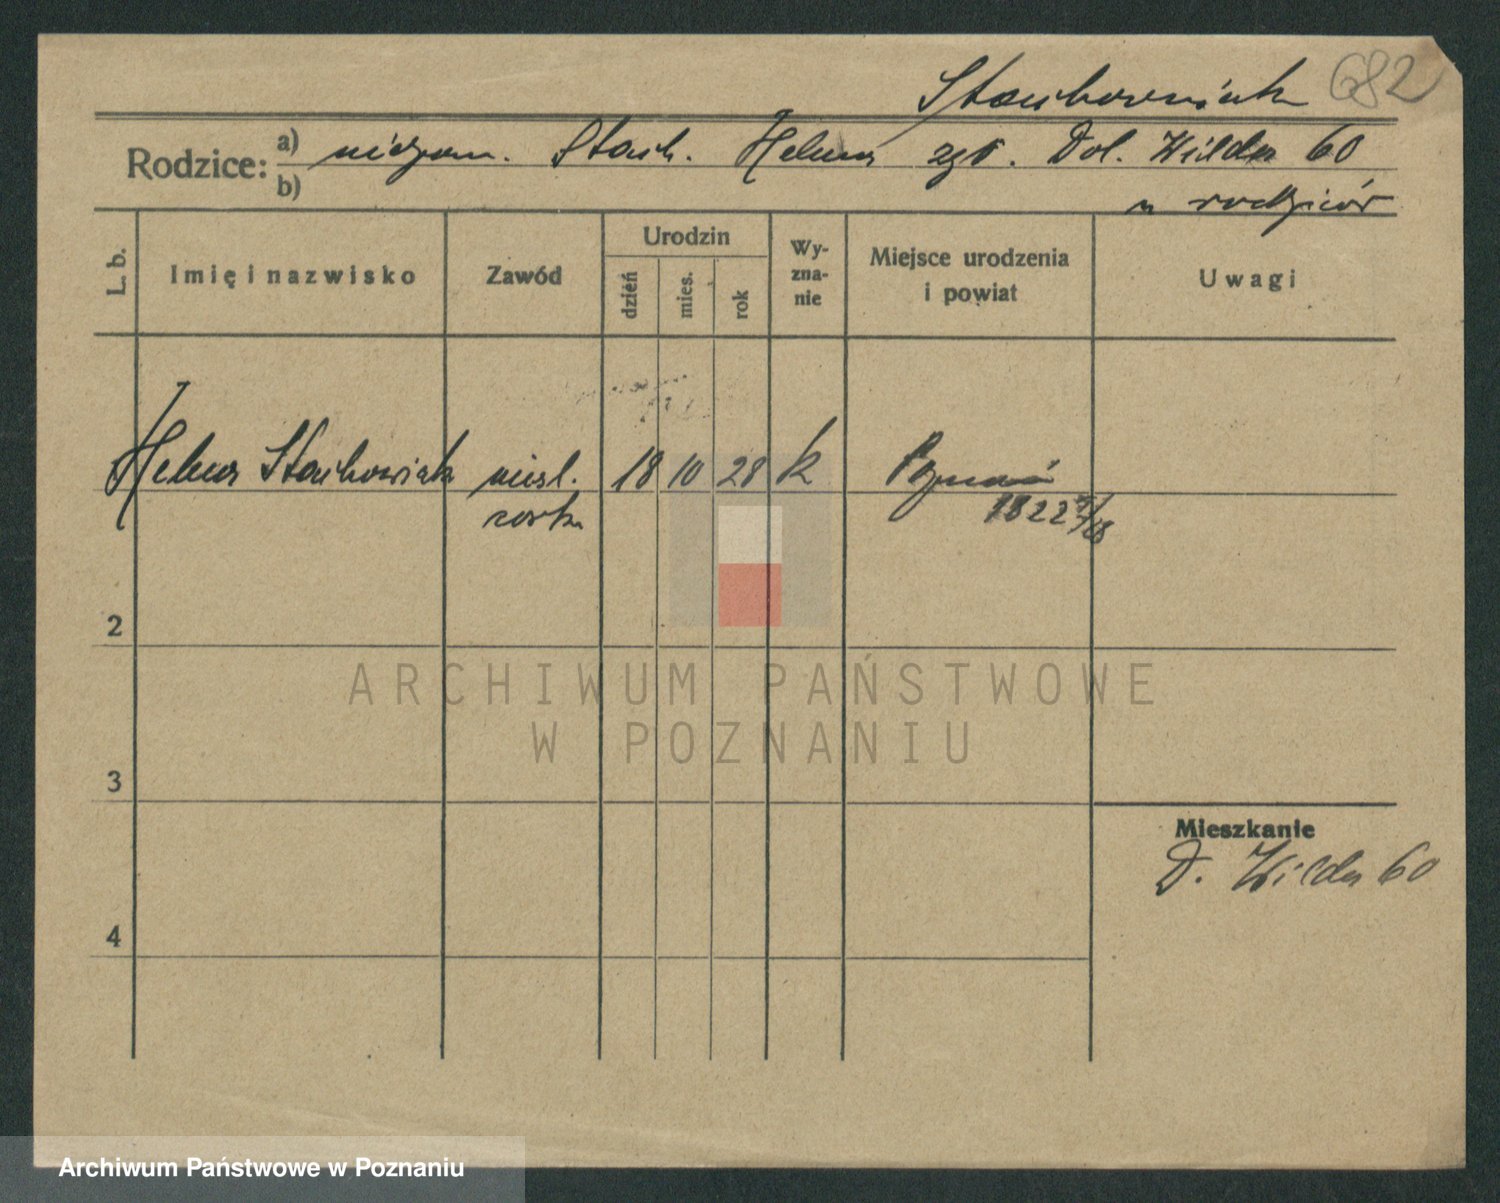 Stachowiak 682
Rodzice: a) niezam. Stach. Helena zgł. Dol. Wilda 60
b) u rodziców
L. b.
Imię i nazwisko
Zawód
Urodzin
dzień
mies.
rok
Wy-
zna-
nie
Miejsce urodzenia
i powiat
Uwagi
Helena Stachowiak nieśl. 18 10 28 k Poznań
córka 1822/28
2
ARCHIWUM PAŃSTWOWE
W POZNANIU
3
Mieszkanie
D. Wilda 60
4
Archiwum Państwowe w Poznaniu